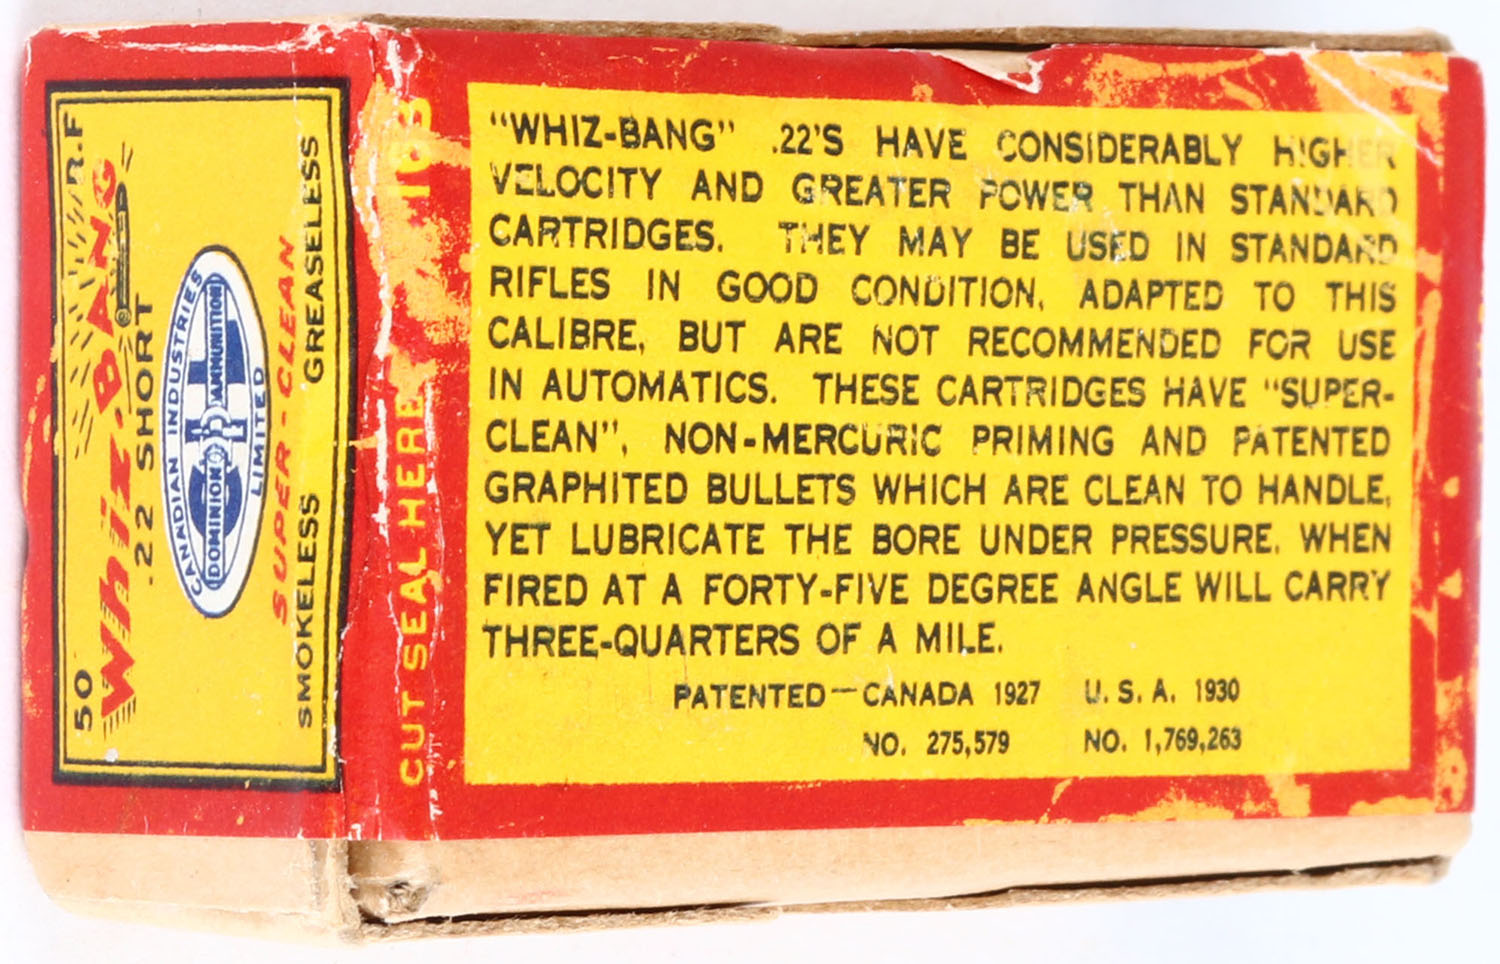 50 Whiz-BANG R.F
.22 SHORT
CANADIAN INDUSTRIES
DOMINION AMMUNITION
LIMITED
SUPER-CLEAN
SMOKELESS GREASELESS
CUT SEAL HERE
"WHIZ-BANG" .22'S HAVE CONSIDERABLY HIGHER
VELOCITY AND GREATER POWER THAN STANDARD
CARTRIDGES. THEY MAY BE USED IN STANDARD
RIFLES IN GOOD CONDITION, ADAPTED TO THIS
CALIBRE, BUT ARE NOT RECOMMENDED FOR USE
IN AUTOMATICS. THESE CARTRIDGES HAVE "SUPER-
CLEAN", NON-MERCURIC PRIMING AND PATENTED
GRAPHITED BULLETS WHICH ARE CLEAN TO HANDLE,
YET LUBRICATE THE BORE UNDER PRESSURE. WHEN
FIRED AT A FORTY-FIVE DEGREE ANGLE WILL CARRY
THREE-QUARTERS OF A MILE.
PATENTED—CANADA 1927 U. S. A. 1930
NO. 275,579 NO. 1,769,263